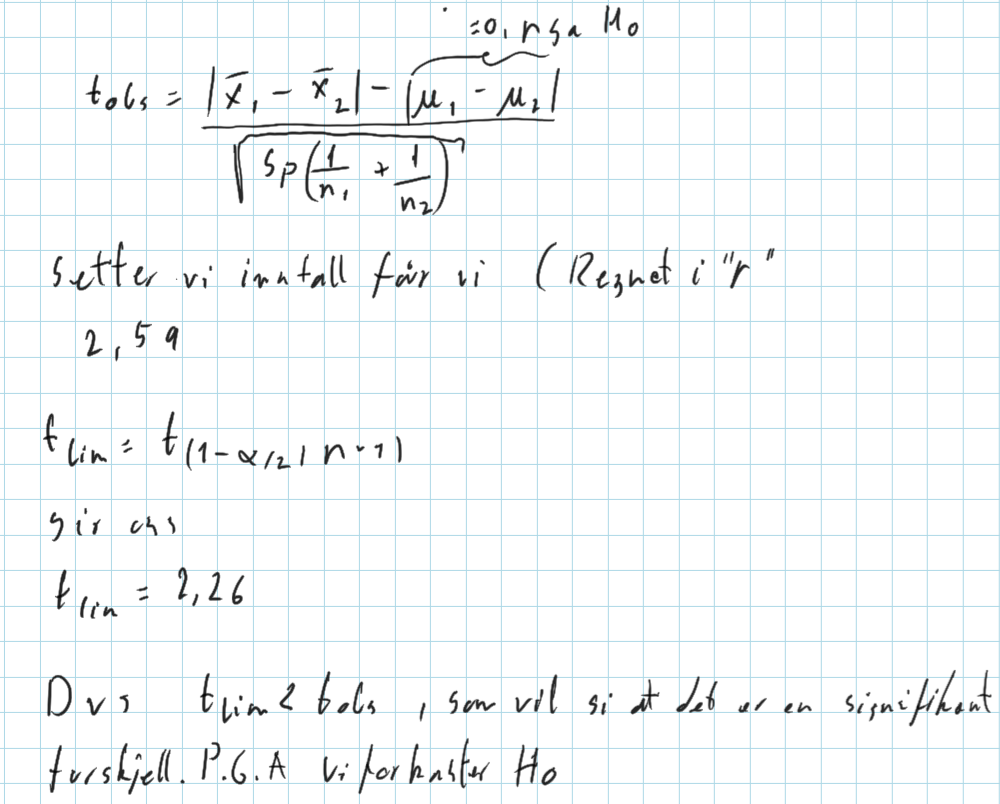 =0, pga H₀
t_obs = |x̄₁ - x̄₂| - |μ₁ - μ₂| / √(Sp(1/n₁ + 1/n₂))
Setter vi inn tall får vi (Regnet i "r"
2,59
t_lim = t_(1-α/2, n-1)
gir oss
t_lim = 2,26
Dvs t_lim < t_obs, som vil si at det er en signifikant
forskjell. P.G.A vi forkaster H₀